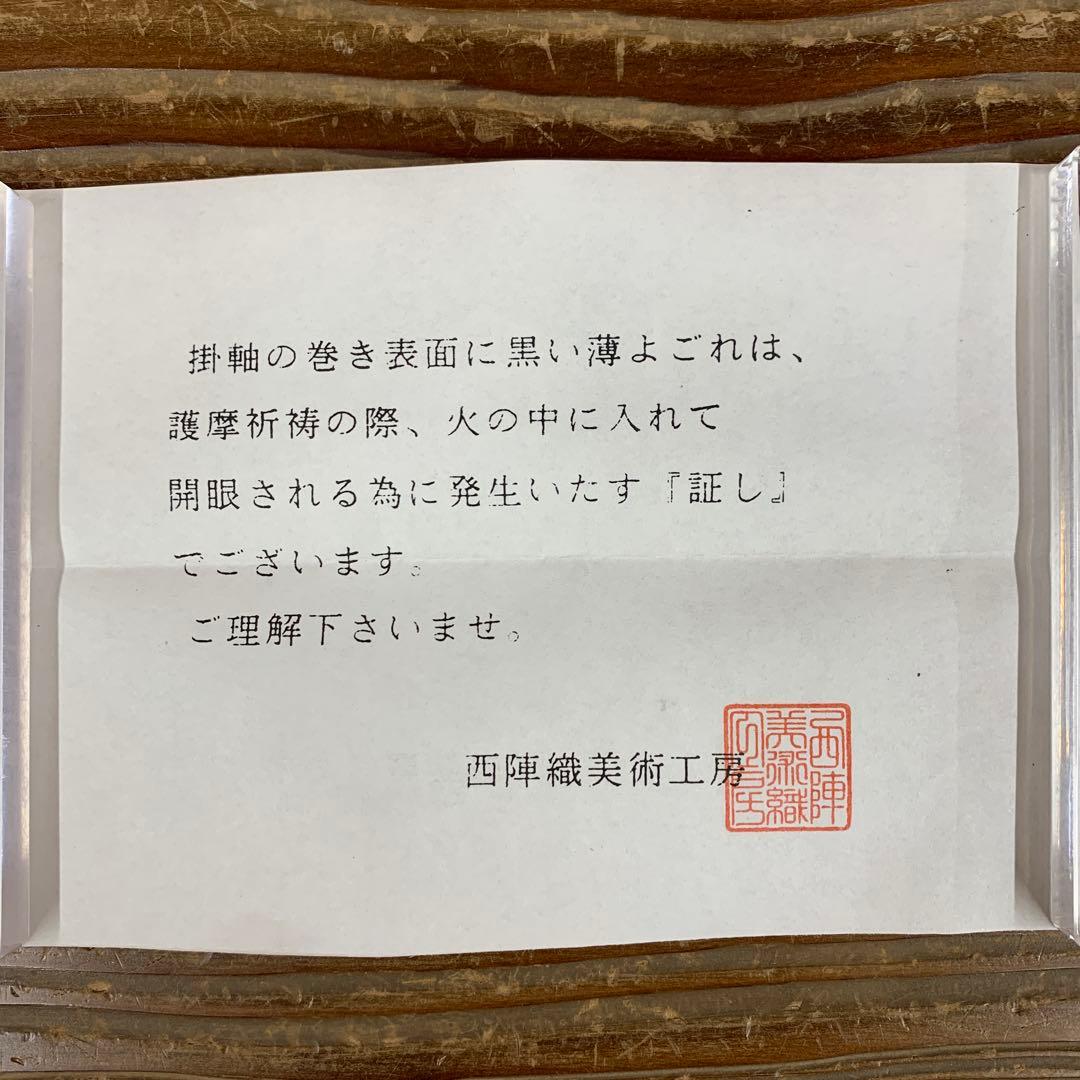 掛軸の巻き表面に黒い薄よごれは、
護摩祈祷の際、火の中に入れて
開眼される為に発生いたす『証し』
でございます。
ご理解下さいませ。
西陣織美術工房
西陣
美術織
工房